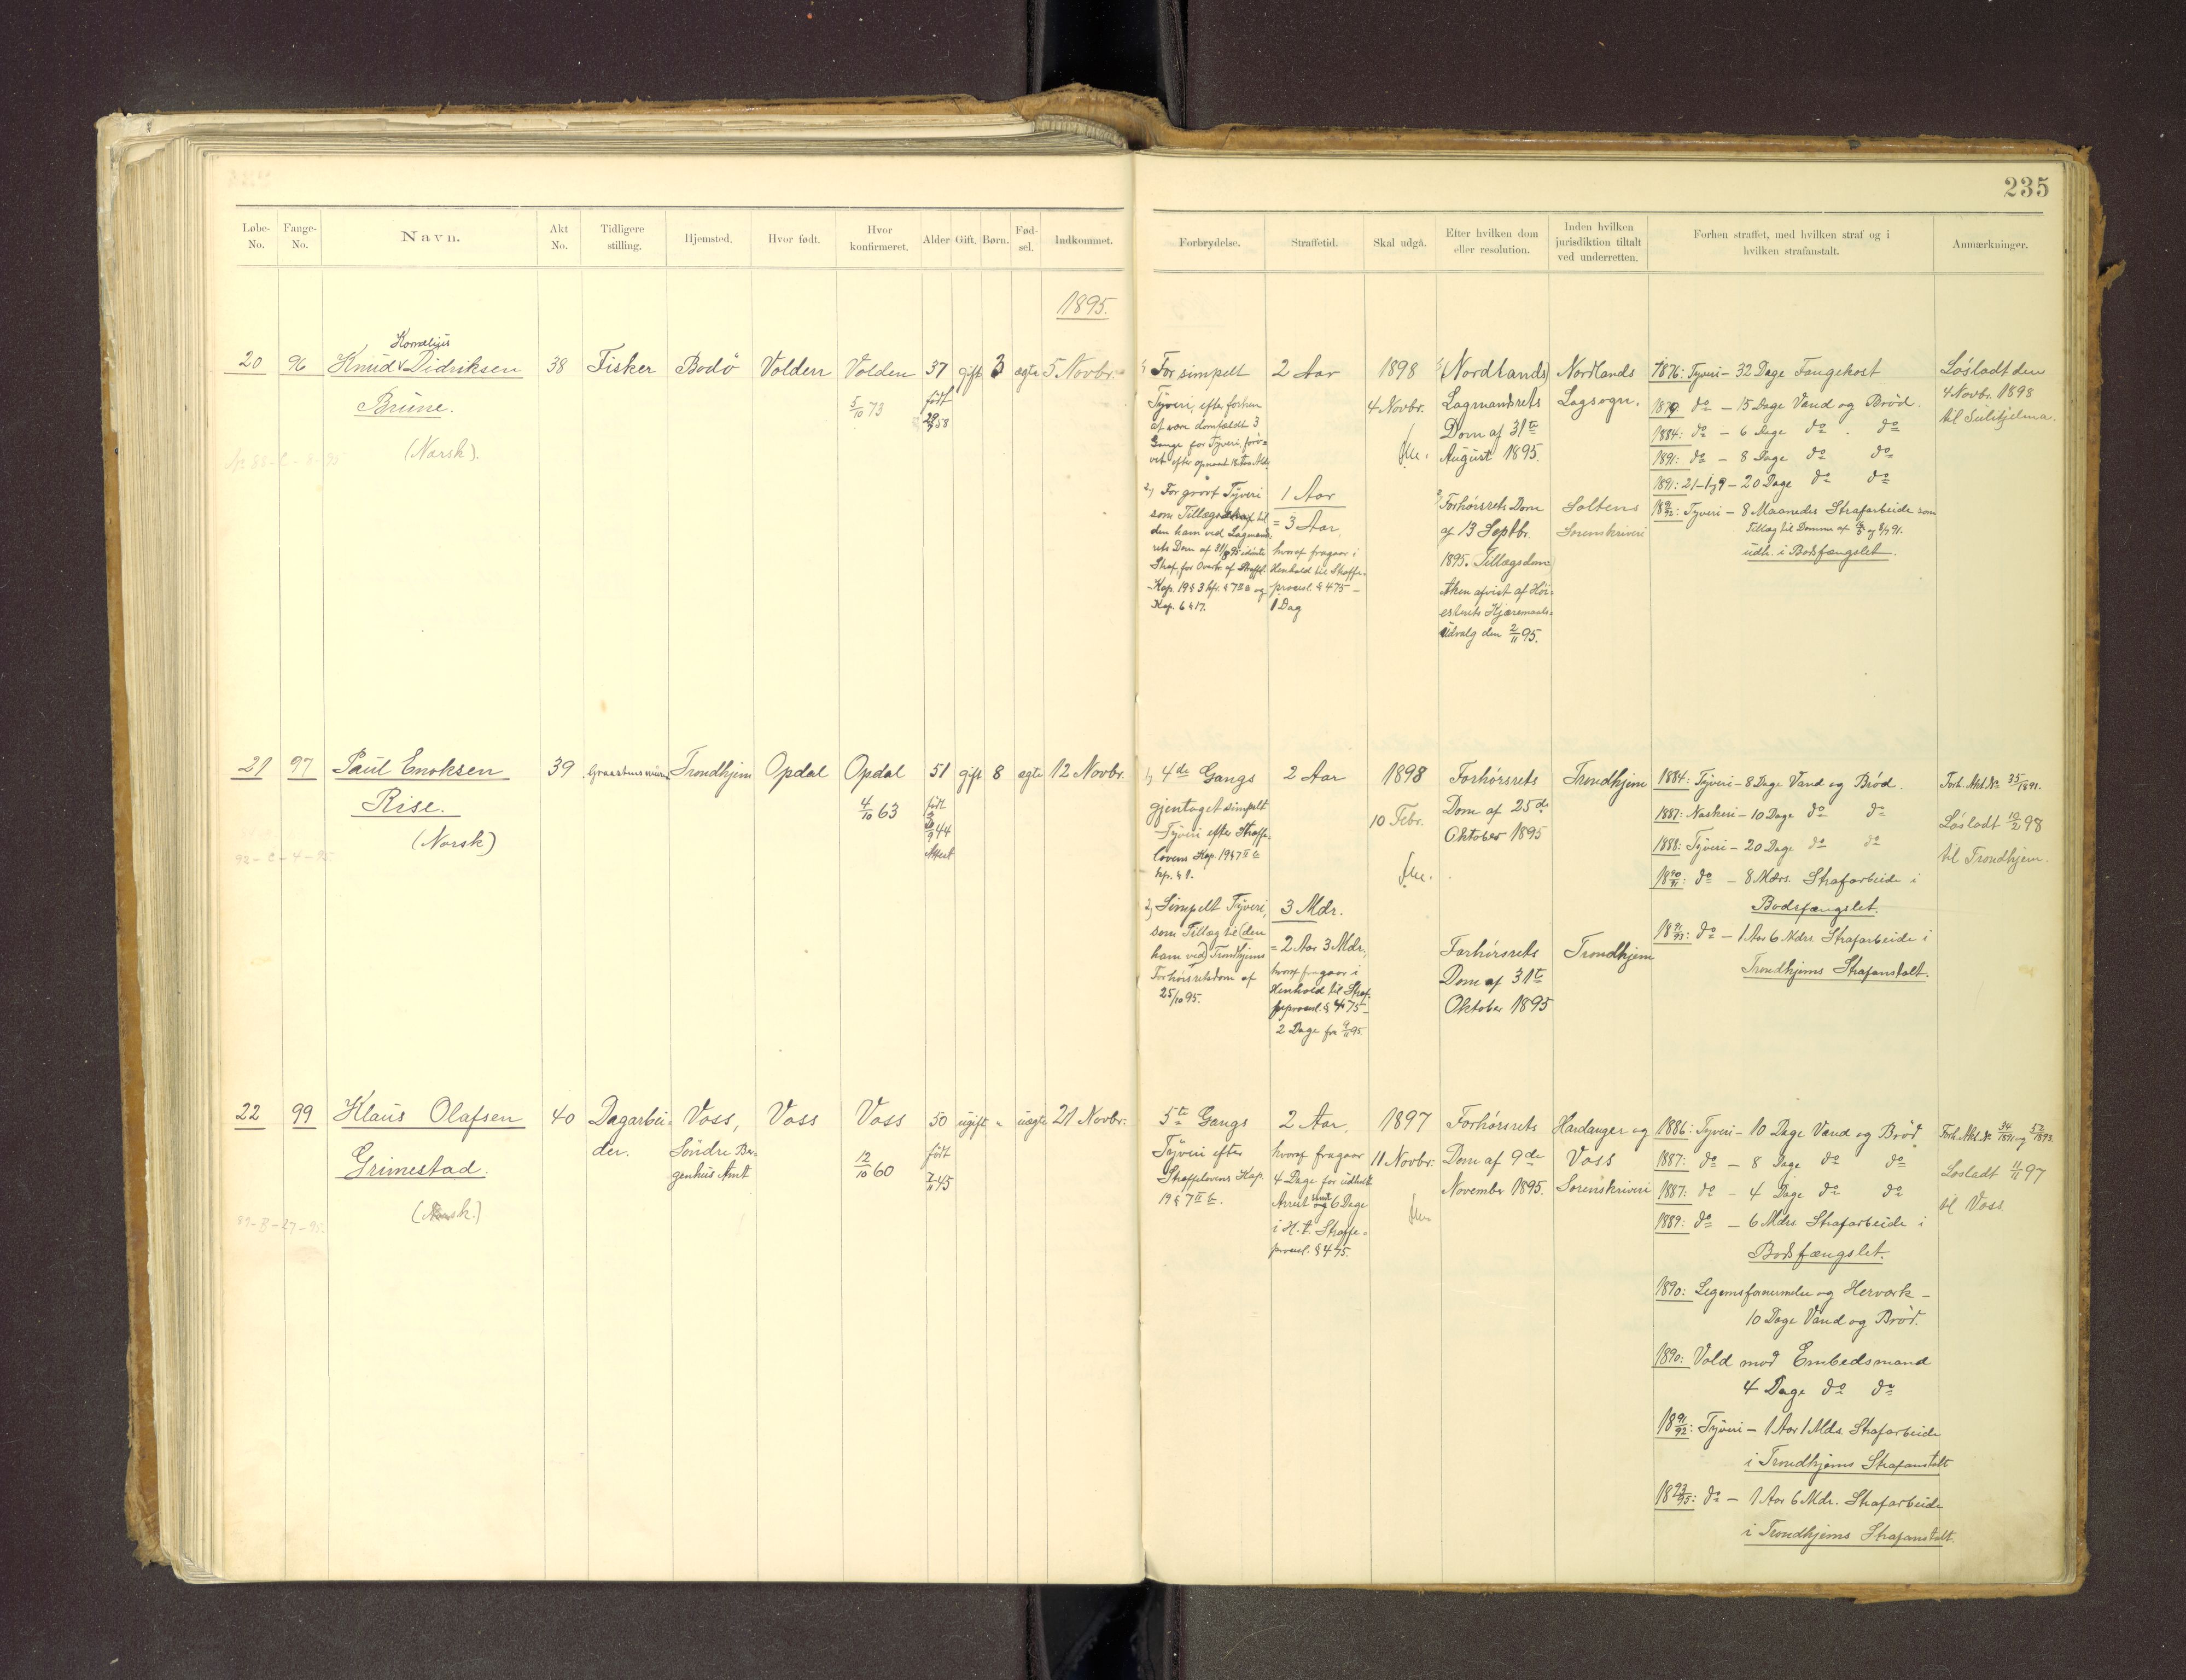 235
Løbe-No. Fange-No. Navn. Akt No. Tidligere stilling. Hjemsted. Hvor født. Hvor konfirmeret. Alder Gift. Børn. Fød-sel. Indkommet.
Forbrydelse. Straffetid. Skal udgå. Efter hvilken dom eller resolution. Inden hvilken jurisdiktion tiltalt ved underretten. Forhen straffet, med hvilken straf og i hvilken strafanstalt. Anmærkninger.
1895.
20 96
Kornelius
Knud Didriksen
Brune.
(Norsk).
38 Fisker Bodø Volden
Volden
5/10 73
37
født
gift 3 ægte 5 Novbr.
1) For simpelt
Tyveri, efter forhen
at være domfældt 3
Gange for Tyveri, forø=
vet efter opnaaet 18 Aars Alder
2) For grovt Tyveri
som Tillægsstraf til
den ham ved Lagmands
rets Dom af 31/8 95 idømte
Straf, for Overtr. af Straffel.
Kap. 19 § 3 kfr. § 7 og
Kap. 6 § 17.
2 Aar
1 Aar
= 3 Aar,
hvoraf fragaar i
Henhold til Straffe-
procesl. § 475 –
1 Dag
1898
4 Novbr.
1) (Nordlands)
Lagmandsrets
Dom af 31te
August 1895.
2) Forhørsrets Dom
af 13 Septbr.
1895. Tillægsdom
Anken afvist af Høi=
esterets Kjæremaals=
udvalg den 2/11 95.
Nordlands
Lagsogn.
Saltens
Sorenskriveri
1876: Tyveri – 32 Dage Fangekost
1879: do – 15 Dage Vand og Brød.
1884: do – 6 Dage do . do
1891: do – 8 Dage do do
1891: 21-1/9 – 20 Dage do do
1891/92: Tyveri – 8 Maaneders Strafarbeide som
Tillæg til Domme af
udh. i Bodsfængslet.
Løsladt den
4 Novbr. 1898
til Sulitjelma.
21 97
Paul Enoksen
Rise.
(Norsk)
39 Graastensmurer Trondhjem Opdal
Opdal
4/10 63
51
født
Attest
gift 8 ægte 12 Novbr.
1) 4de Gangs
gjentaget simpelt
Tyveri efter Straffe-
lovens Kap. 19 § 7
2) Simpelt Tyveri,
som Tillæg til (den
ham ved) Trondhjems
Forhørsretsdom af
25/10 95.
2 Aar
3 Mdr.
= 2 Aar 3 Mdr,
hvoraf fragaar i
Henhold til Straf-
feprocesl. § 475 –
2 Dage fra 9/11 95.
1898
10 Febr.
Forhørsrets
Dom af 25de
Oktober 1895
Forhørsrets
Dom af 31te
Oktober 1895
Trondhjem
Trondhjem
1884: Tyveri – 8 Dage Vand og Brød.
1887: Naskeri – 10 Dage do do
1888: Tyveri – 20 Dage do do
1890/91: do – 8 Mdrs. Strafarbeide i
Bodsfængslet.
1891/93: do – 1 Aar 6 Mdrs. Strafarbeide i
Trondhjems Strafanstalt.
Forh. Akt. No 35/1891.
Løsladt 10/2 98
til Trondhjem.
22 99
Klaus Olafsen
Grimestad.
(Norsk.)
89-B-27-95.
40
Dagarbei=
der.
Voss,
Søndre Ber-
genhus Amt
Voss
Voss
12/10 60
50
født
7/11 45
ugift " uægte 21 Novbr.
5te Gangs
Tyveri efter
Straffelovens Kap.
19 § 7
2 Aar,
hvoraf fragaar
4 Dage for udholdt
Arrest samt 6 Dage
i H. t. Straffe=
procesl. § 475.
1897
11 Novbr.
Forhørsrets
Dom af 9de
November 1895.
Hardanger og
Voss
Sorenskriveri
1886: Tyveri – 10 Dage Vand og Brød
1887: do – 8 Dage do do
1887: do – 4 Dage do do
1889: do – 6 Mdrs. Strafarbeide i
Bodsfængslet.
1890: Legemsfornærmelse og Hærværk –
10 Dage Vand og Brød.
1890: Vold mod Embedsmand
4 Dage do do
1891/92: Tyveri – 1 Aar 1 Mds. Strafarbeide
i Trondhjems Strafanstalt
1893/95: do – 1 Aar 6 Mdr. Strafarbeide
i Trondhjems Strafanstalt.
Forh. Akt. No 34/1891 og 52/1893.
Løsladt 11/11 97
til Voss